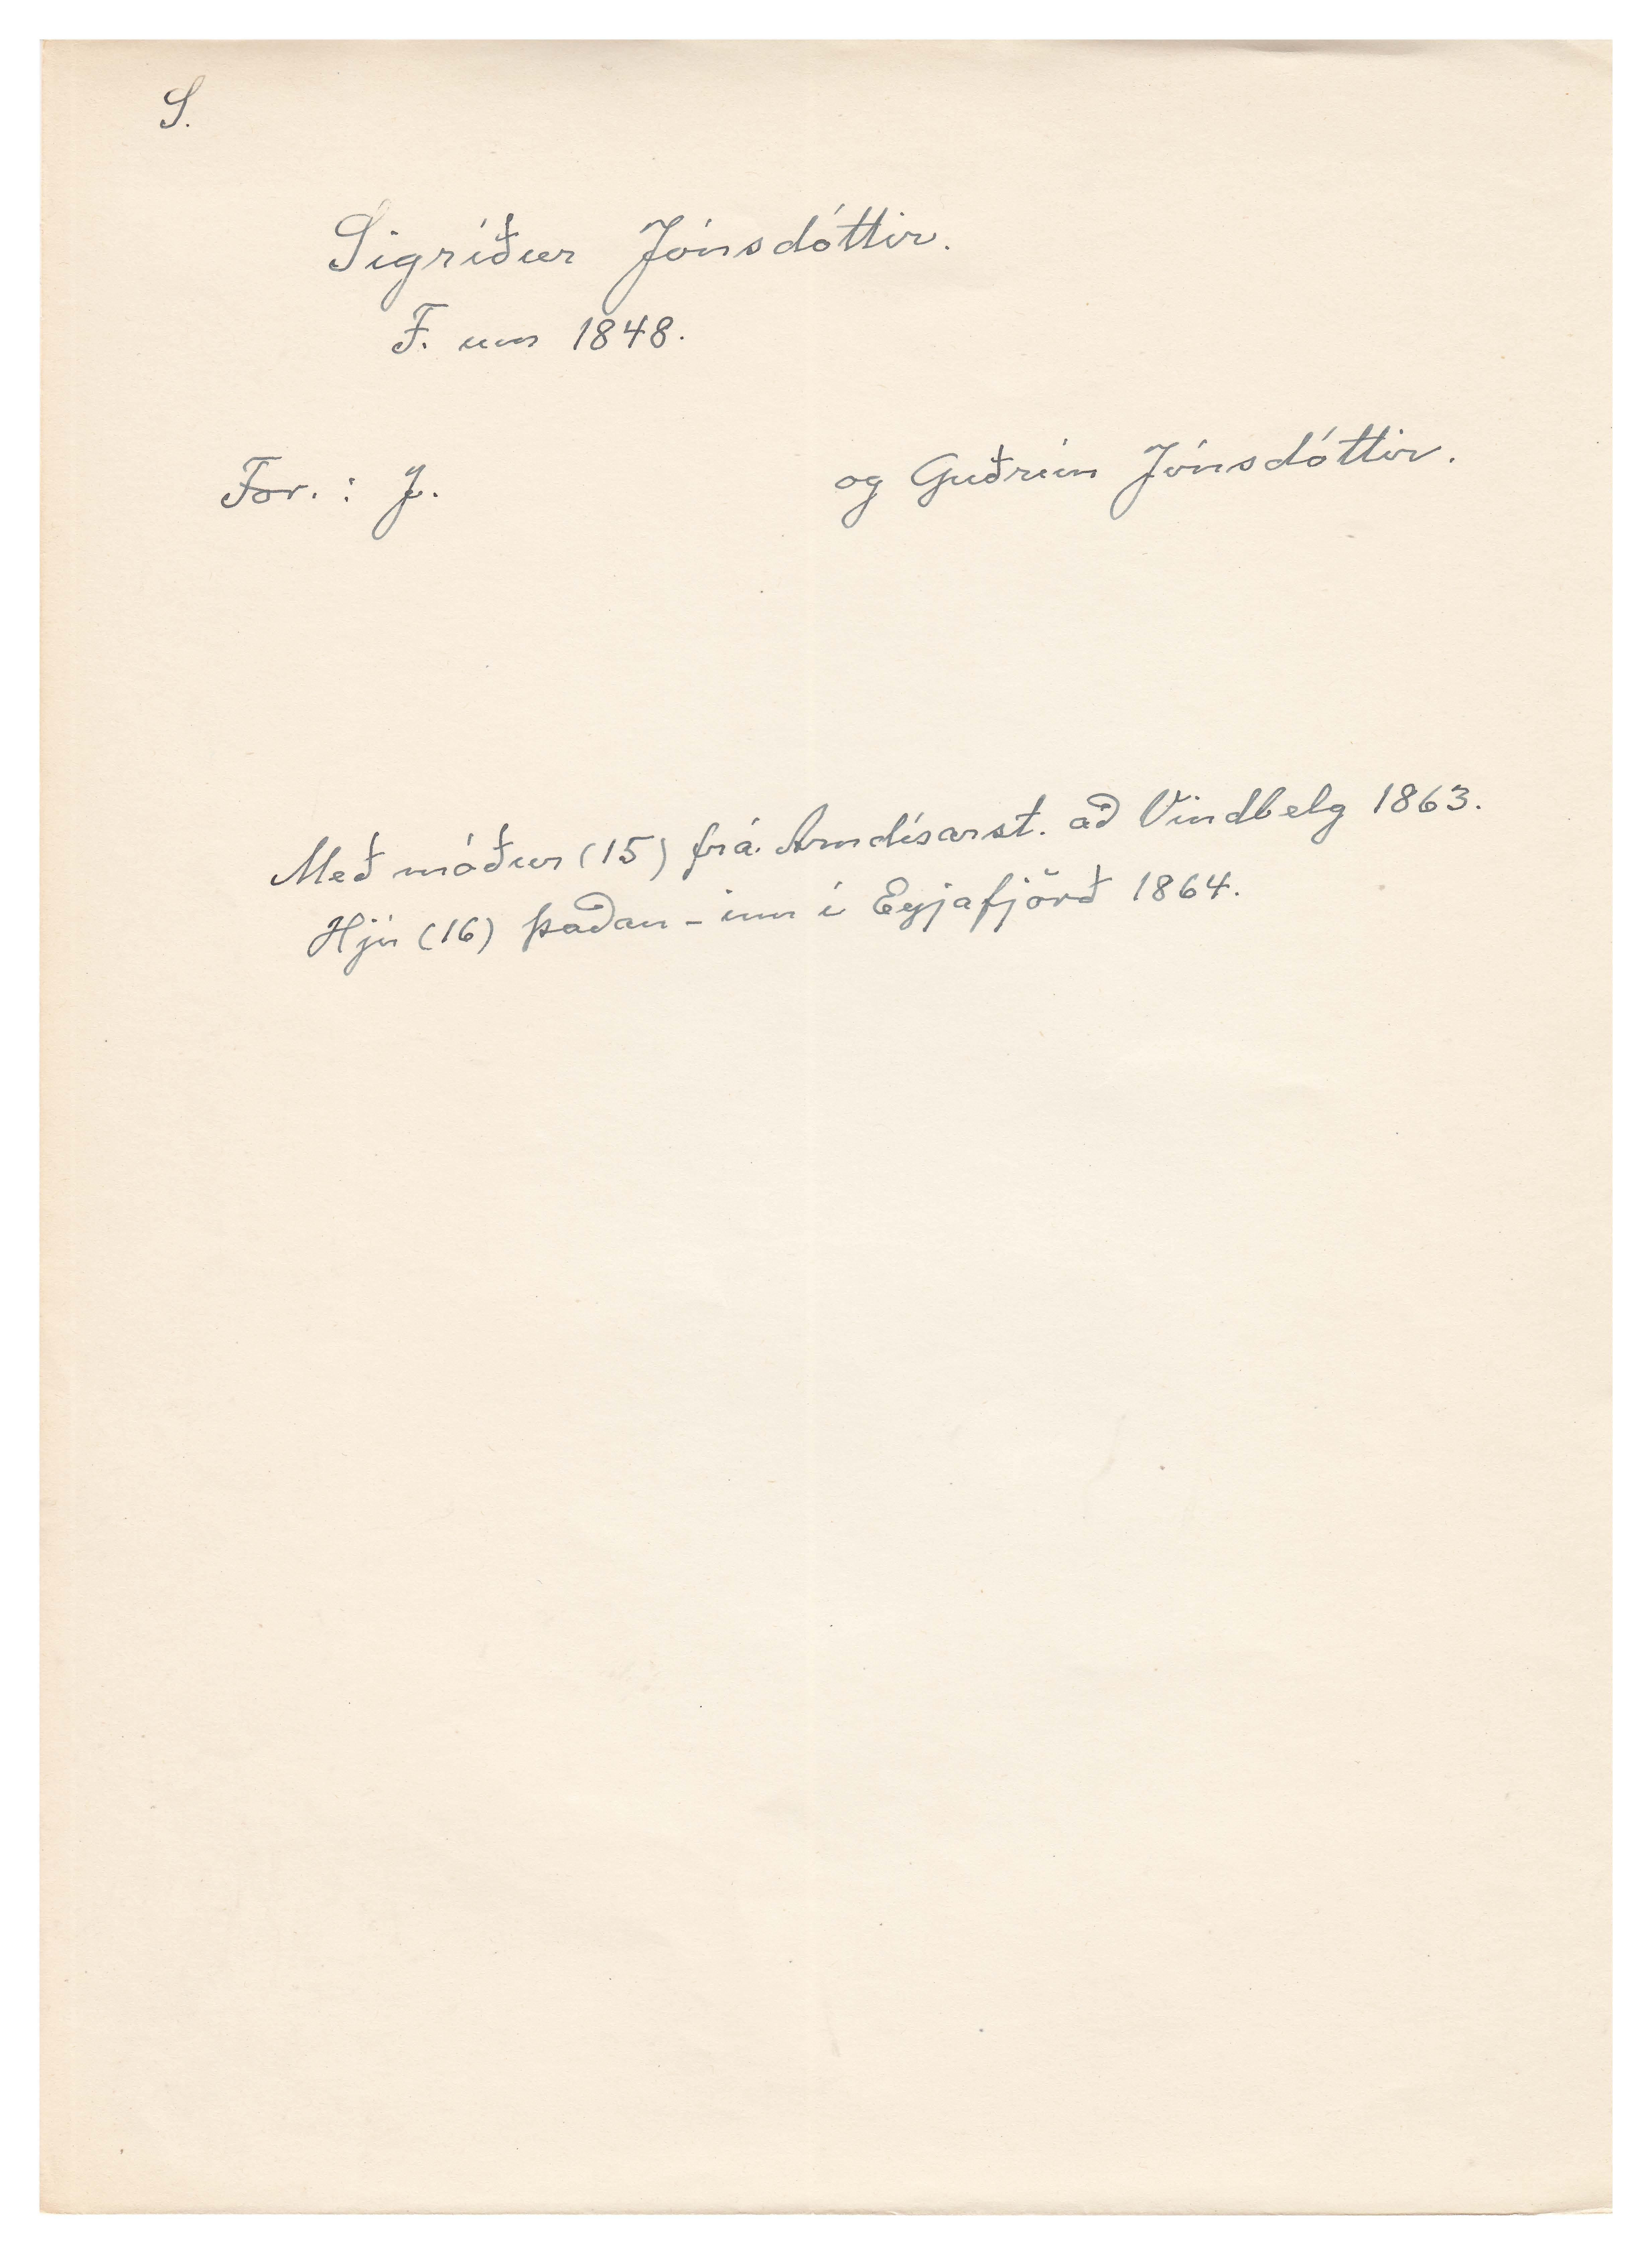 S.
Sigríður Jónsdóttir.
F. um 1848.
For.: J. og Guðrún Jónsdóttir.
Með móður (15) frá Arndísarst. að Vindbelg 1863.
Hjú (16) þaðan - inn í Eyjafjörð 1864.